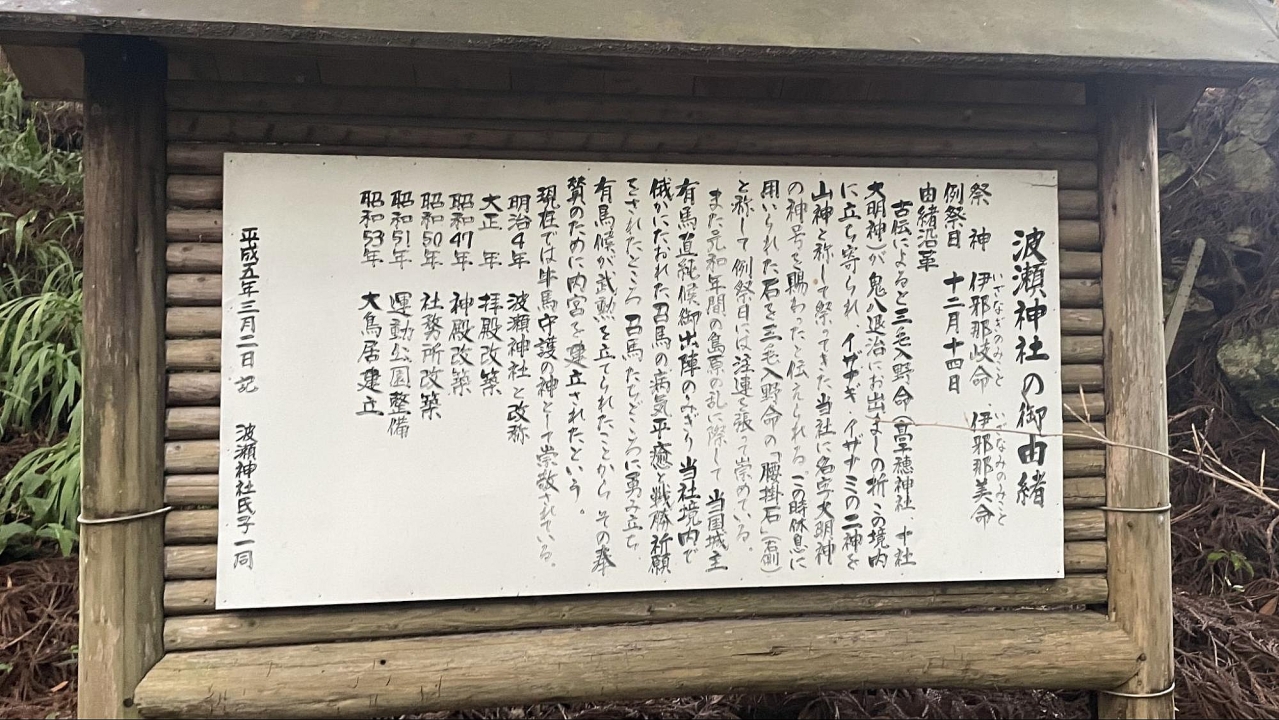 波瀬神社の御由緒
祭 神 伊邪那岐命 伊邪那美命
いざなぎのみこと いざなみのみこと
例祭日 十二月十四日
由緒沿革
古伝によると三毛入野命(高千穂神社、十社
大明神)が鬼八退治にお出ましの折、この境内
に立ち寄られ イザナギ・イザナミの二神を
山神と称して祭ってきた当社に名字大明神
の神号を賜わったと伝えられる。この時休息に
用いられた石を三毛入野命の「腰掛石」(右側)
と称して例祭日には注連を張って崇めている。
また元和年間の島原の乱に際して 当国城主
有馬直純候御出陣のみぎり 当社境内で
俄かにたおれた召馬の病気平癒と戦勝祈願
をされたところ 召馬たちどころに勇み立ち
有馬候が武勲を立てられたことから、その奉
賛のために内宮を建立されたという。
現在では牛馬守護の神として崇敬されている。
明治4年 波瀬神社と改称
大正 年 拝殿改築
昭和47年 神殿改築
昭和50年 社務所改築
昭和51年 運動公園整備
昭和53年 大鳥居建立
平成五年三月二日 記 波瀬神社氏子一同